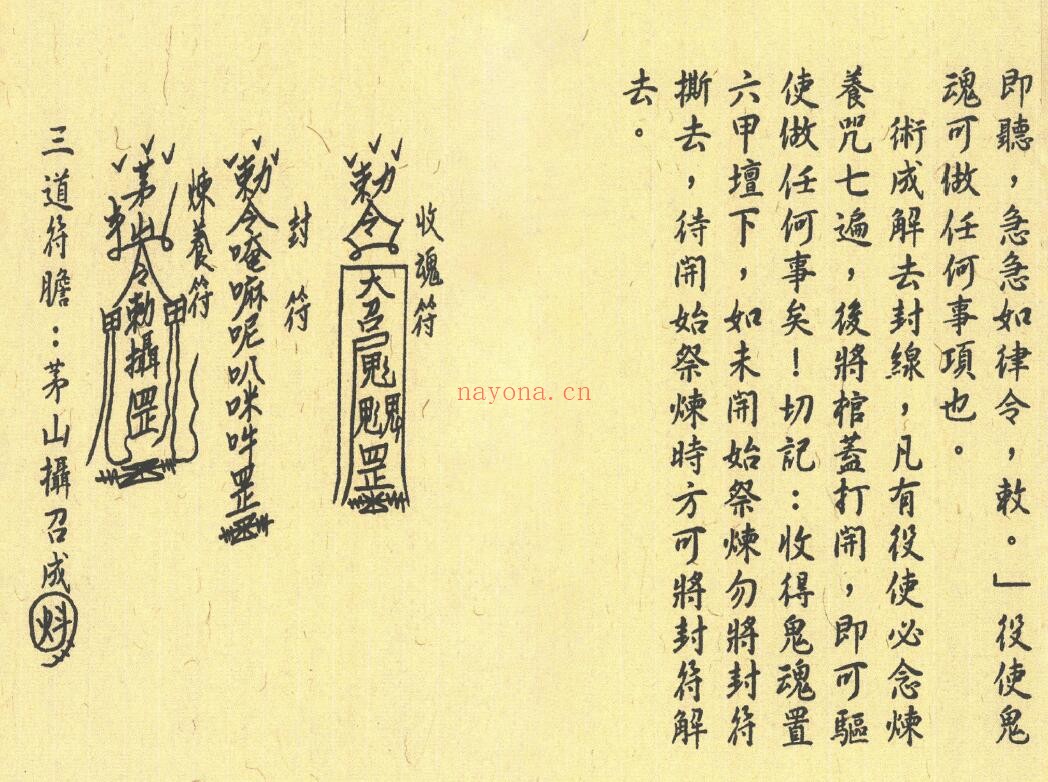 即聽，急急如律令，敕。」役使鬼
魂可做任何事項也。
術成解去封線，凡有役使必念煉
養咒七遍，後將棺蓋打開，即可驅
使做任何事矣！切記：收得鬼魂置
六甲壇下，如未開始祭煉勿將封符
撕去，待開始祭煉時方可將封符解
去。
收魂符
勅令
大召
罡
封符
勅令唵嘛呢叭咪吽罡
煉養符
茅山令勅攝罡
甲 甲
三道符膽：茅山攝召成
nayona.cn